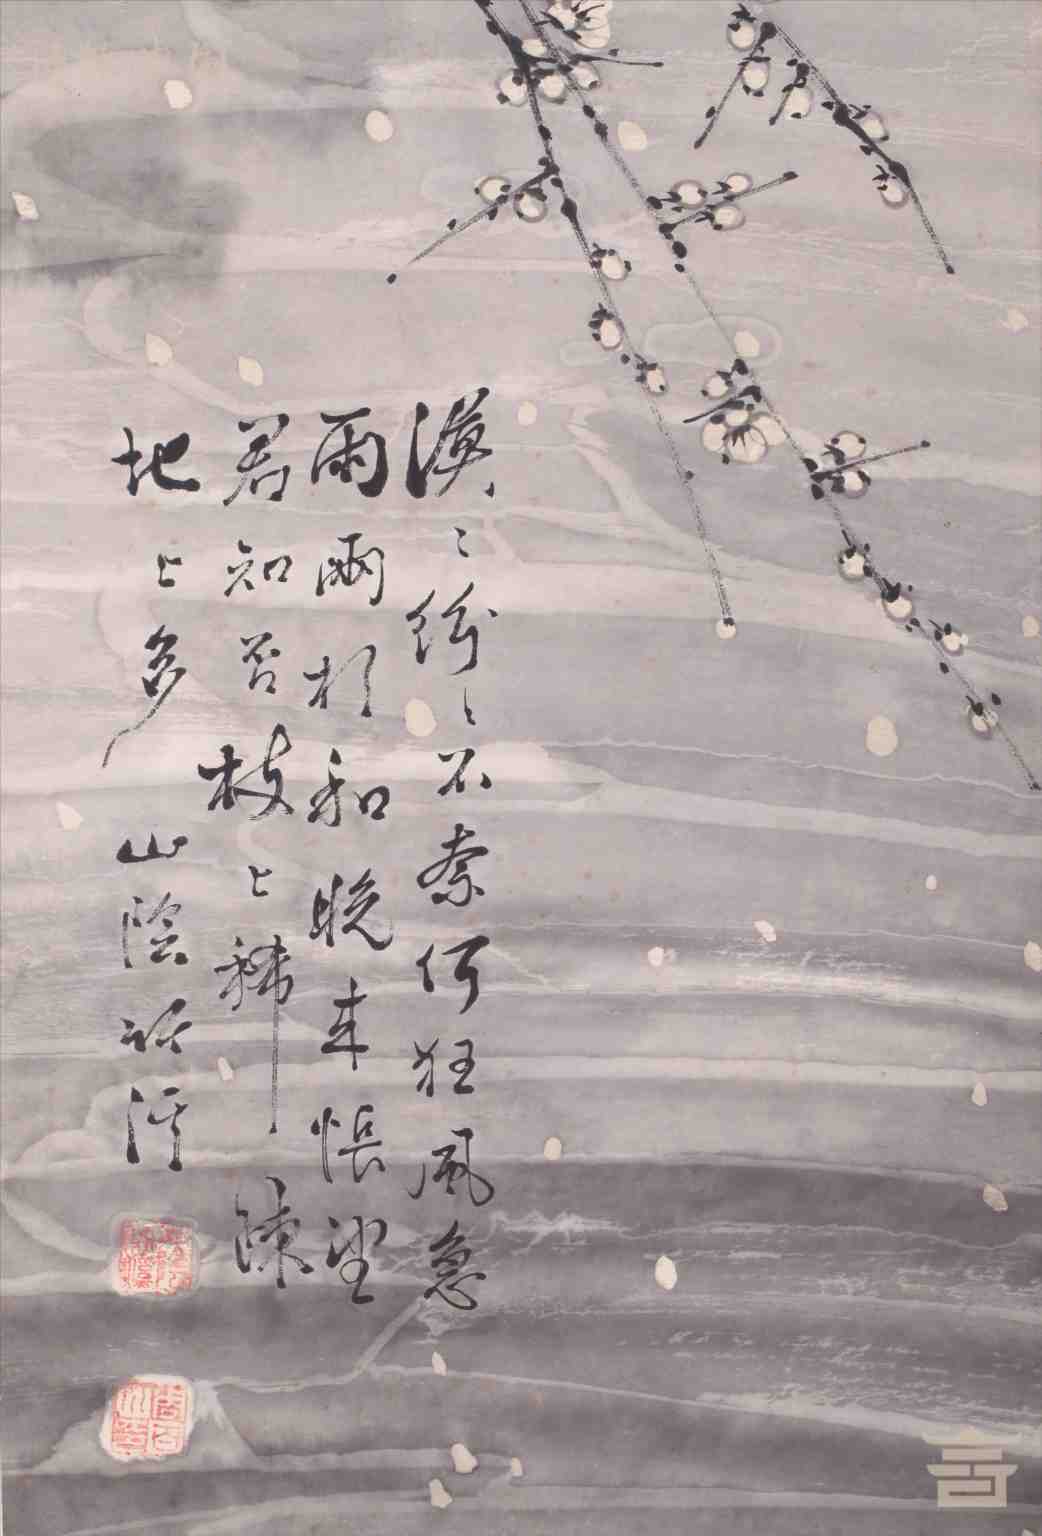 漠〻紛〻不奈何狂風急
雨兩相和晚來悵望
君知否枝上稀疎
地上多 山陰